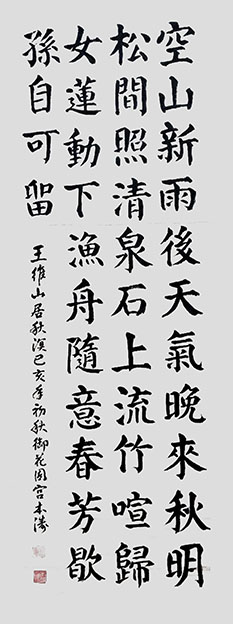 空山新雨後天氣晚來秋明
松間照清泉石上流竹喧歸
女蓮動下漁舟隨意春芳歇
孫自可留
王維山居秋溟己亥年初秋御花園宮本濤